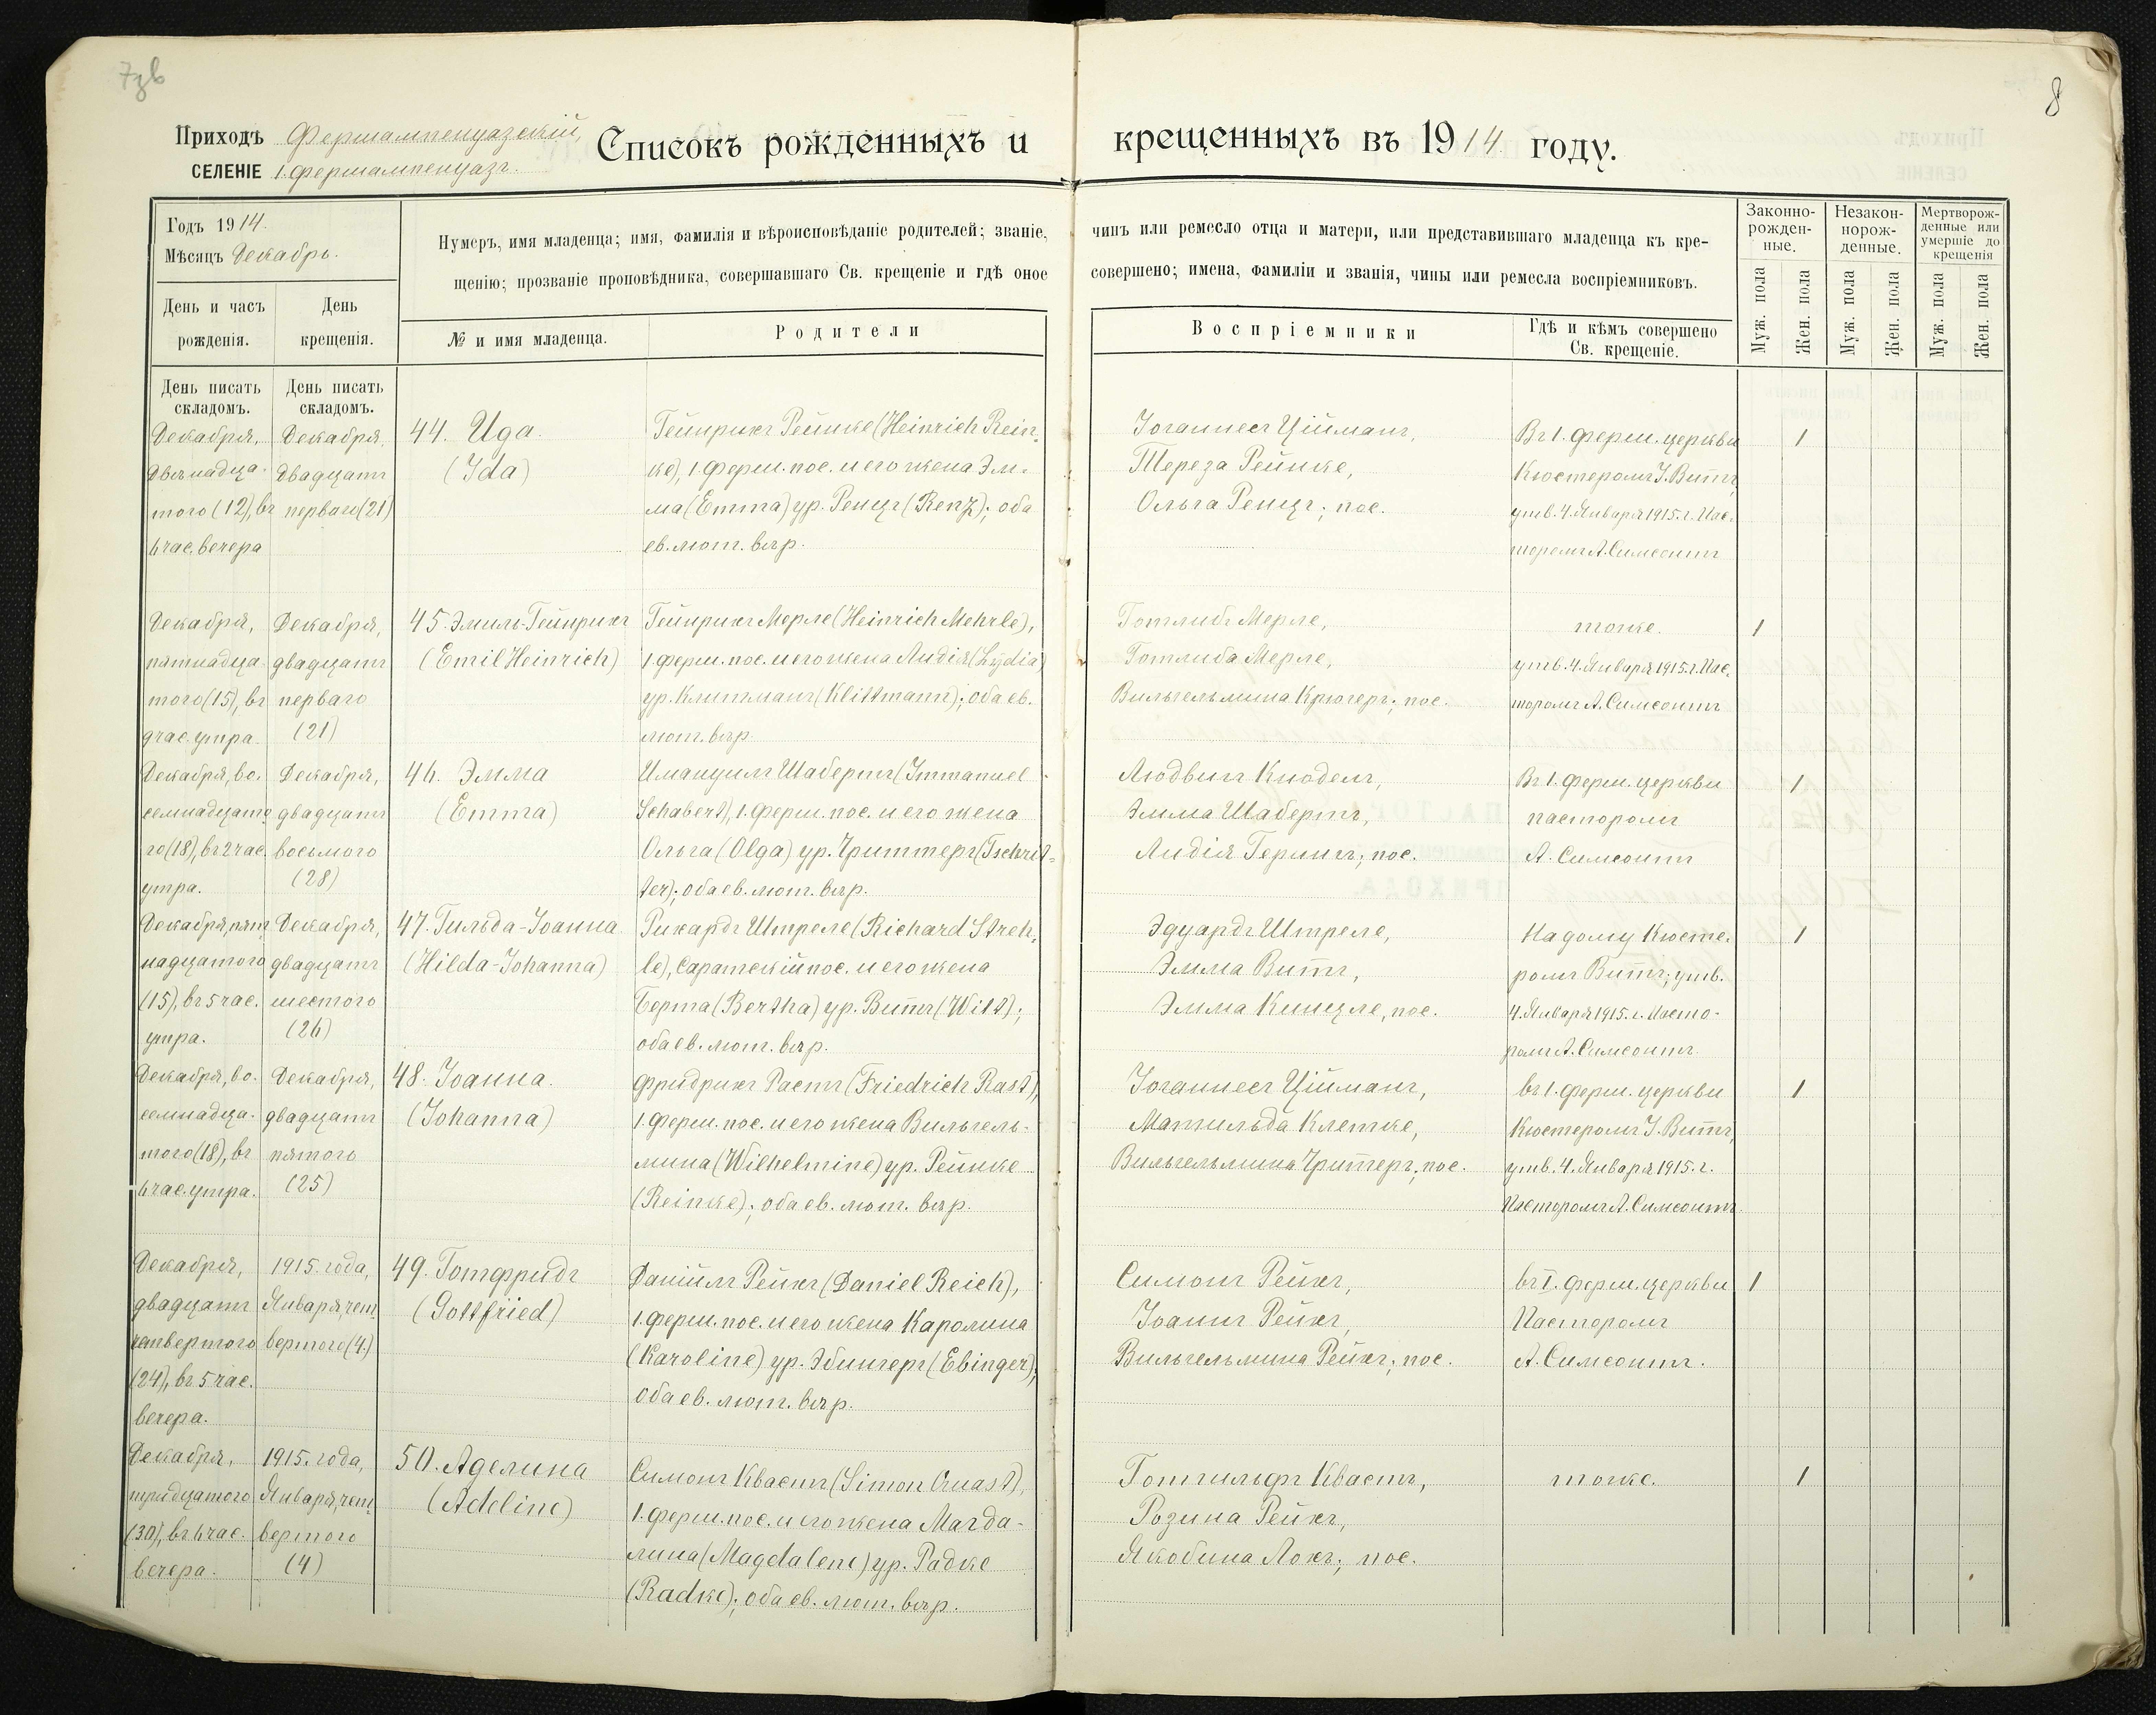 7зв
8
Приходъ Фершампенуазскій,
СЕЛЕНІЕ 1. Фершампенуазъ.
Списокъ рожденныхъ и крещенныхъ въ 1914 году.
Годъ 1914.
Мѣсяцъ Декабрь.
День и часъ рожденія.
День крещенія.
Нумеръ, имя младенца; имя, фамилія и вѣроисповѣданіе родителей; званіе, чинъ или ремесло отца и матери, или представившаго младенца къ кре-
щенію; прозваніе проповѣдника, совершавшаго Св. крещеніе и гдѣ оное совершено; имена, фамиліи и званія, чины или ремесла воспріемниковъ.
№ и имя младенца.
Родители
Воспріемники
Гдѣ и кѣмъ совершено
Св. крещеніе.
Законно-
рожден-
ные.
Незакон-
норож-
денные.
Мертворож-
денные или
умершіе до
крещенія
Муж. пола
Жен. пола
Муж. пола
Жен. пола
Муж. пола
Жен. пола
День писать
складомъ.
День писать
складомъ.
Декабря,
двѣнадца-
того (12), въ
6 час. вечера
Декабря,
двадцать
перваго (21)
44. Ида.
(Ida)
Гейнрихъ Рейнке (Heinrich Rein-
ke), 1. Ферш. пос. и его жена Эм-
ма (Emma) ур. Ренцъ (Renz); оба
ев. лют. вѣр.
Іоганнесъ Ційманъ,
Тереза Рейнке,
Ольга Ренцъ; пос.
Въ 1. Ферш. церкви
Кюстеромъ І. Виттъ,
утв. 4. Января 1915. г. Пас-
торомъ А. Симсонъ
1
Декабря,
пятнадца-
того (15), въ
9 час. утра.
Декабря,
двадцать
перваго
(21)
45. Эмиль-Гейнрихъ
(Emil Heinrich)
Гейнрихъ Мерле (Heinrich Mehrle),
1. Ферш. пос. и его жена Лидія (Lydia)
ур. Клитманъ (Klittmann); оба ев.
лют. вѣр.
Готлибъ Мерле,
Готлиба Мерле,
Вильгельмина Крюгеръ; пос.
тоже.
утв. 4. Января 1915. г. Пас-
торомъ А. Симсонъ
1
Декабря, во-
семнадцато-
го (18), въ 2 час.
утра.
Декабря,
двадцать
восьмого
(28)
46. Эмма
(Emma)
Имануилъ Шабертъ (Immanuel
Schabert), 1. Ферш. пос. и его жена
Ольга (Olga) ур. Чриттеръ (Tschrit-
ter); оба ев. лют. вѣр.
Людвигъ Кнодель,
Эмма Шабертъ,
Лидія Герлигъ; пос.
Въ 1. Ферш. церкви
пасторомъ
А. Симсонъ
1
Декабря, пят-
надцатого
(15), въ 5 час.
утра.
Декабря,
двадцать
шестого
(26)
47. Гильда-Іоанна
(Hilda-Johanna)
Рихардъ Штреле (Richard Streh-
le), Саратскій пос. и его жена
Берта (Bertha) ур. Виттъ (Witt);
оба ев. лют. вѣр.
Эдуардъ Штреле,
Эмма Виттъ,
Эмма Кинцле, пос.
На дому Кюсте-
ромъ Виттъ; утв.
4. Января 1915. г. Пасто-
ромъ А. Симсонъ.
1
Декабря, во-
семнадца-
того (18), въ
6 час. утра.
Декабря,
двадцать
пятого
(25)
48. Іоанна.
(Johanna)
Фридрихъ Растъ (Friedrich Rast),
1. Ферш. пос. и его жена Вильгель-
мина (Wilhelmine) ур. Рейнке
(Reinke); оба ев. лют. вѣр.
Іоганнесъ Ційманъ,
Матильда Клетке,
Вильгельмина Чриттеръ; пос.
въ 1. Ферш. церкви
Кюстеромъ І. Виттъ,
утв. 4. Января 1915. г.
Пасторомъ А. Симсонъ.
1
Декабря,
двадцать
четвертого
(24), въ 5 час.
вечера.
1915. года,
Января, чет-
вертого (4.)
49. Готфридъ
(Gottfried)
Даніилъ Рейхъ (Daniel Reich),
1. Ферш. пос. и его жена Каролина
(Karoline) ур. Эбингеръ (Ebinger);
оба ев. лют. вѣр.
Симонъ Рейхъ,
Іоаннъ Рейхъ,
Вильгельмина Рейхъ; пос.
въ I. Ферш. церкви
Пасторомъ
А. Симсонъ.
1
Декабря,
тридцатого
(30), въ 6 час.
вечера.
1915. года,
Января, чет-
вертого
(4)
50. Аделина
(Adeline)
Симонъ Квастъ (Simon Quast),
1. Ферш. пос. и его жена Магда-
лина (Magdalene) ур. Радке
(Radke); оба ев. лют. вѣр.
Готгильфъ Квастъ,
Розина Рейхъ,
Якобина Лохъ; пос.
тоже.
1